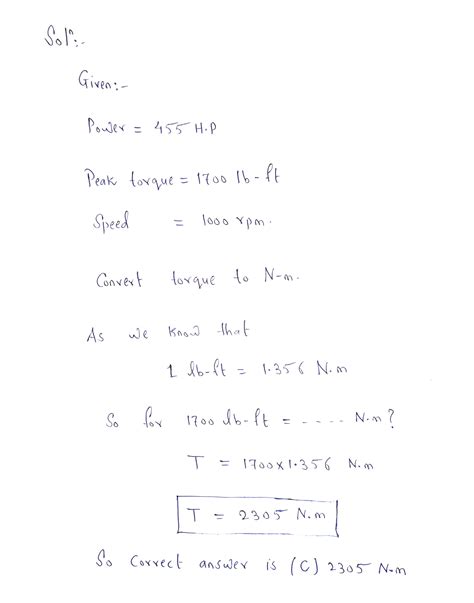 Solⁿ:-
Given:-
Power = 455 H.P
Peak torque = 1700 lb-ft
Speed = 1000 rpm.
Convert torque to N-m.
As we know that
1 lb-ft = 1.356 N.m
So for 1700 lb-ft = ---- N.m?
T = 1700x1.356 N.m
T = 2305 N.m
So correct answer is (C) 2305 N-m